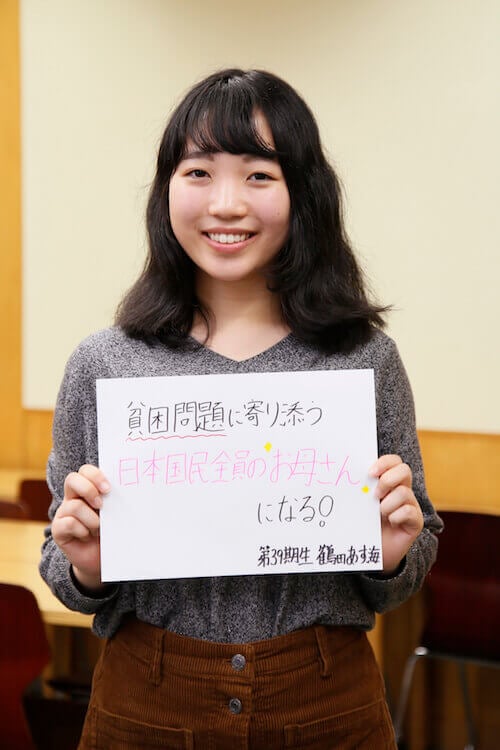 貧困問題に寄り添う
日本国民全員のお母さん
になる!
第39期生 鶴田あす海